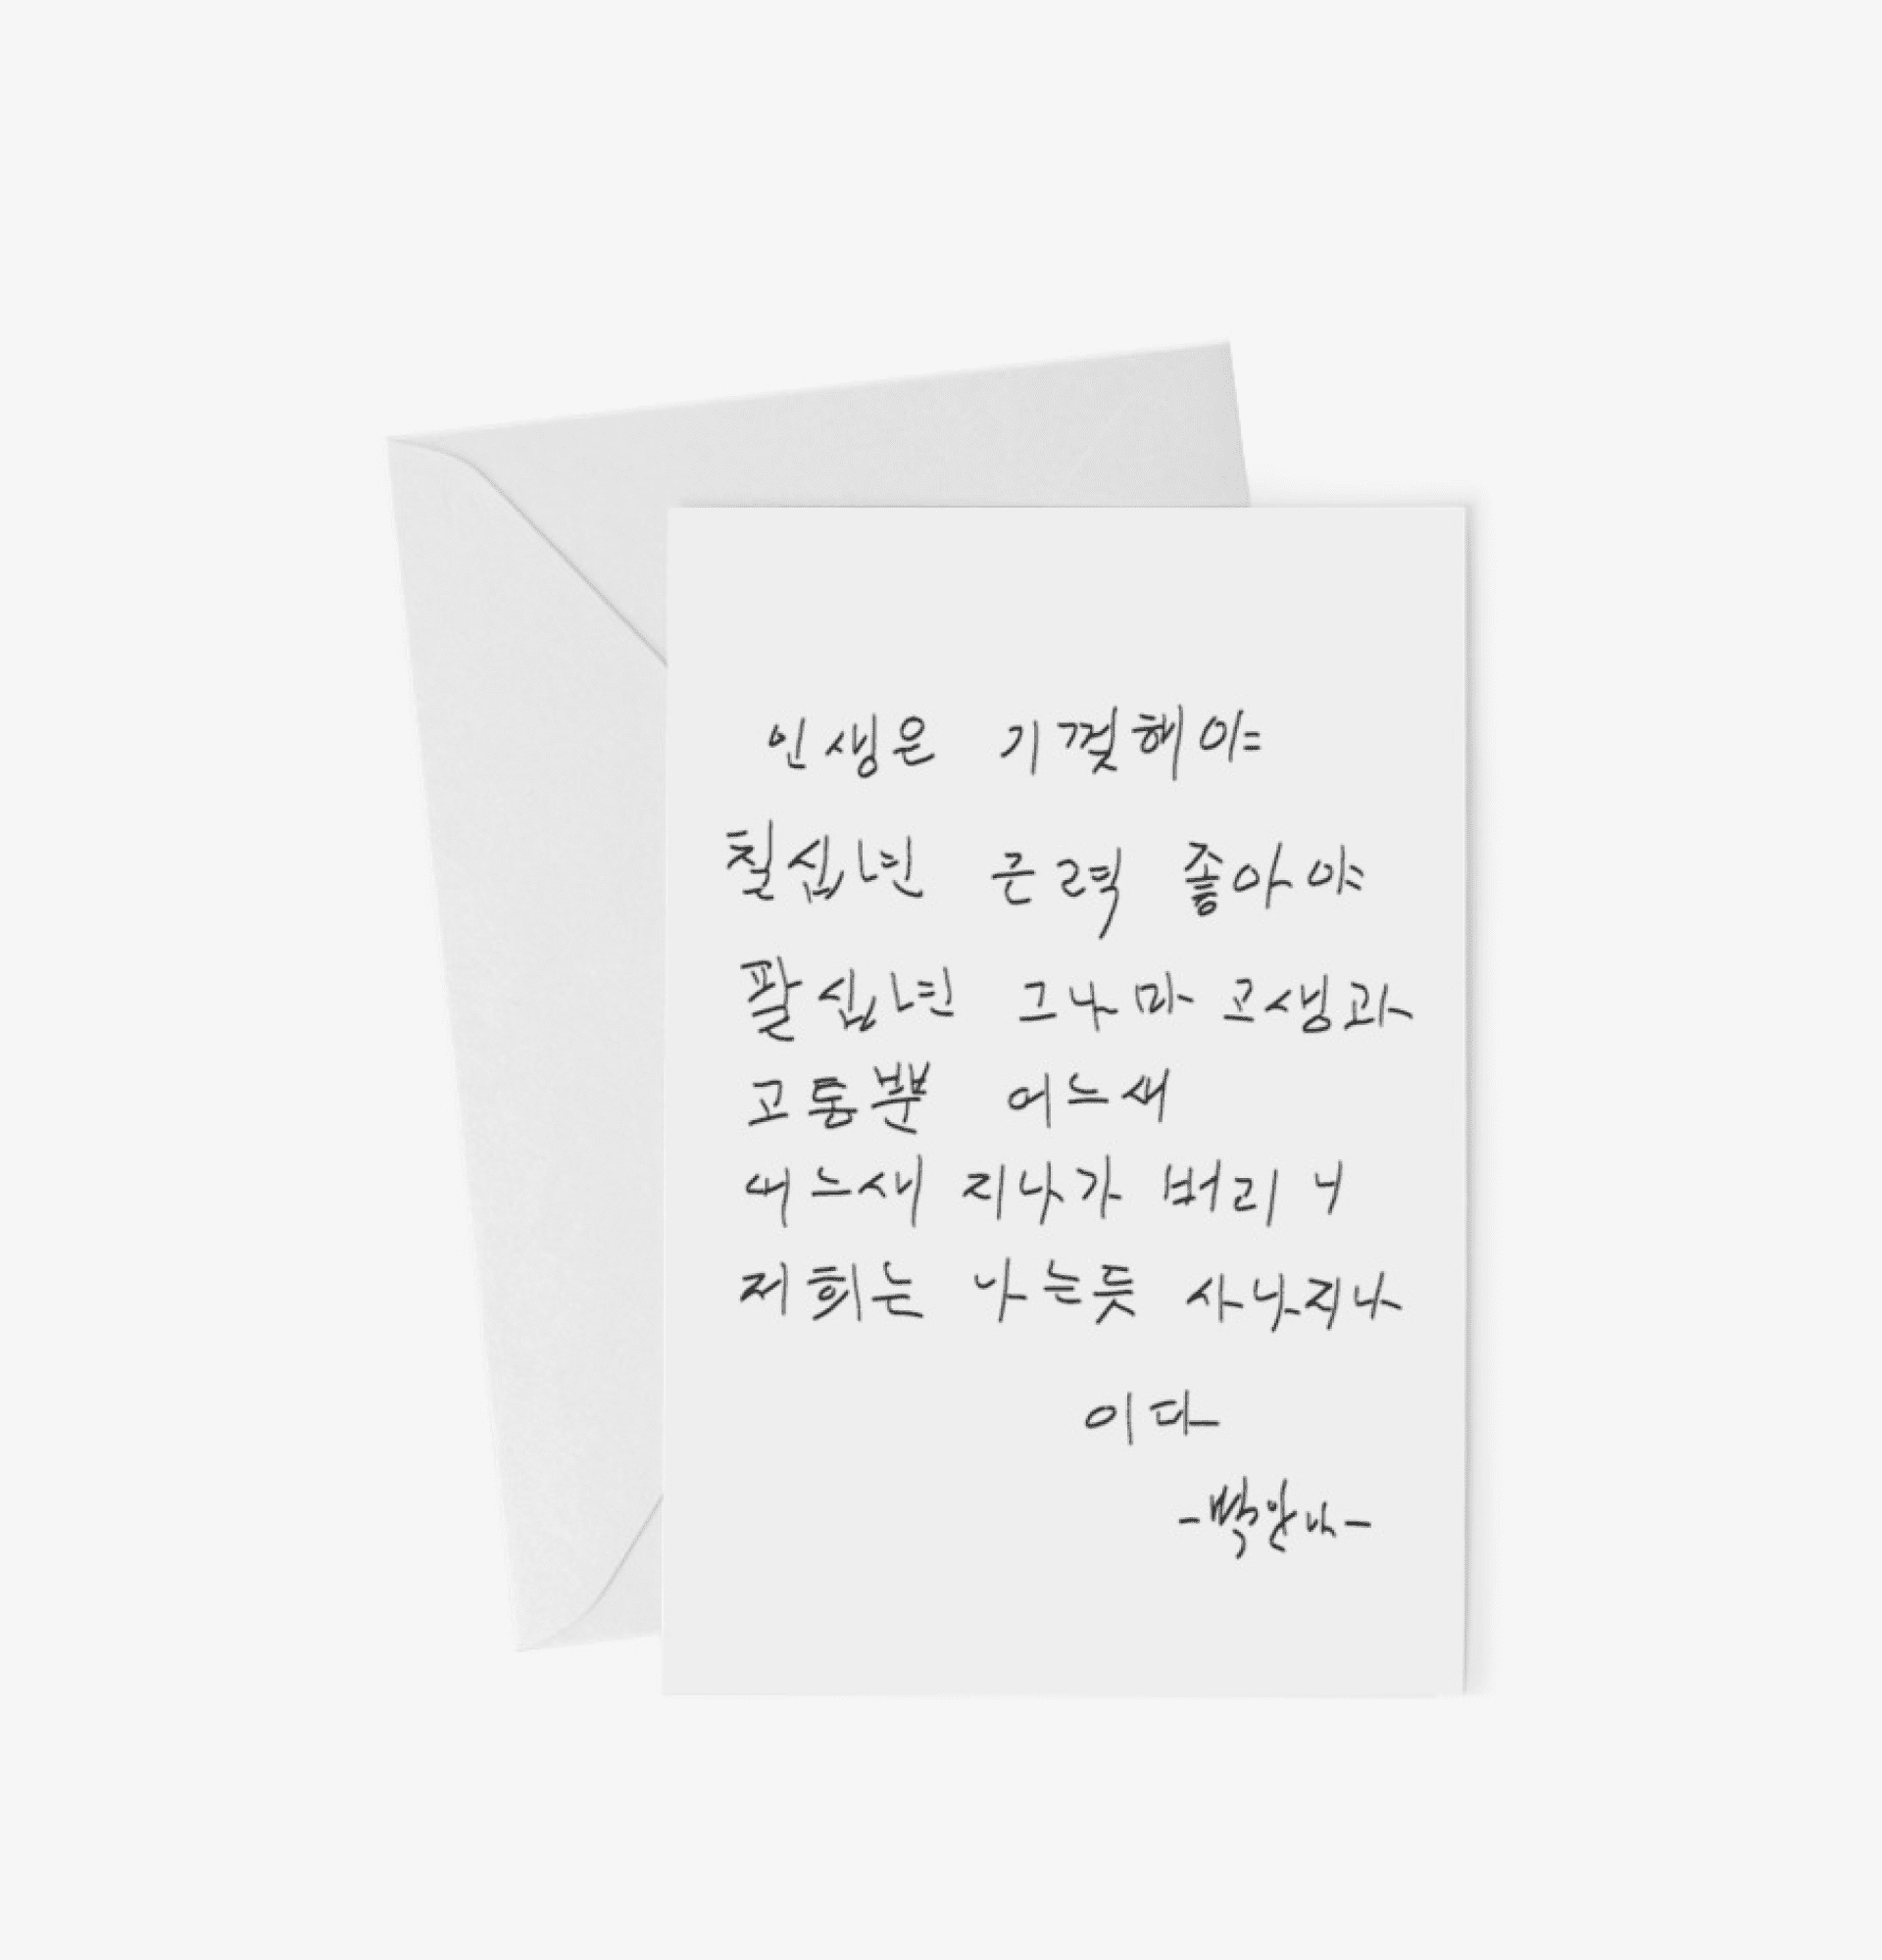 인생은 기껏해야
칠십년 근력 좋아야
팔십년 그나마 고생과
고통뿐 어느새
어느새 지나가 버리니
저희는 나는듯 사나지나
이다
-박안나-